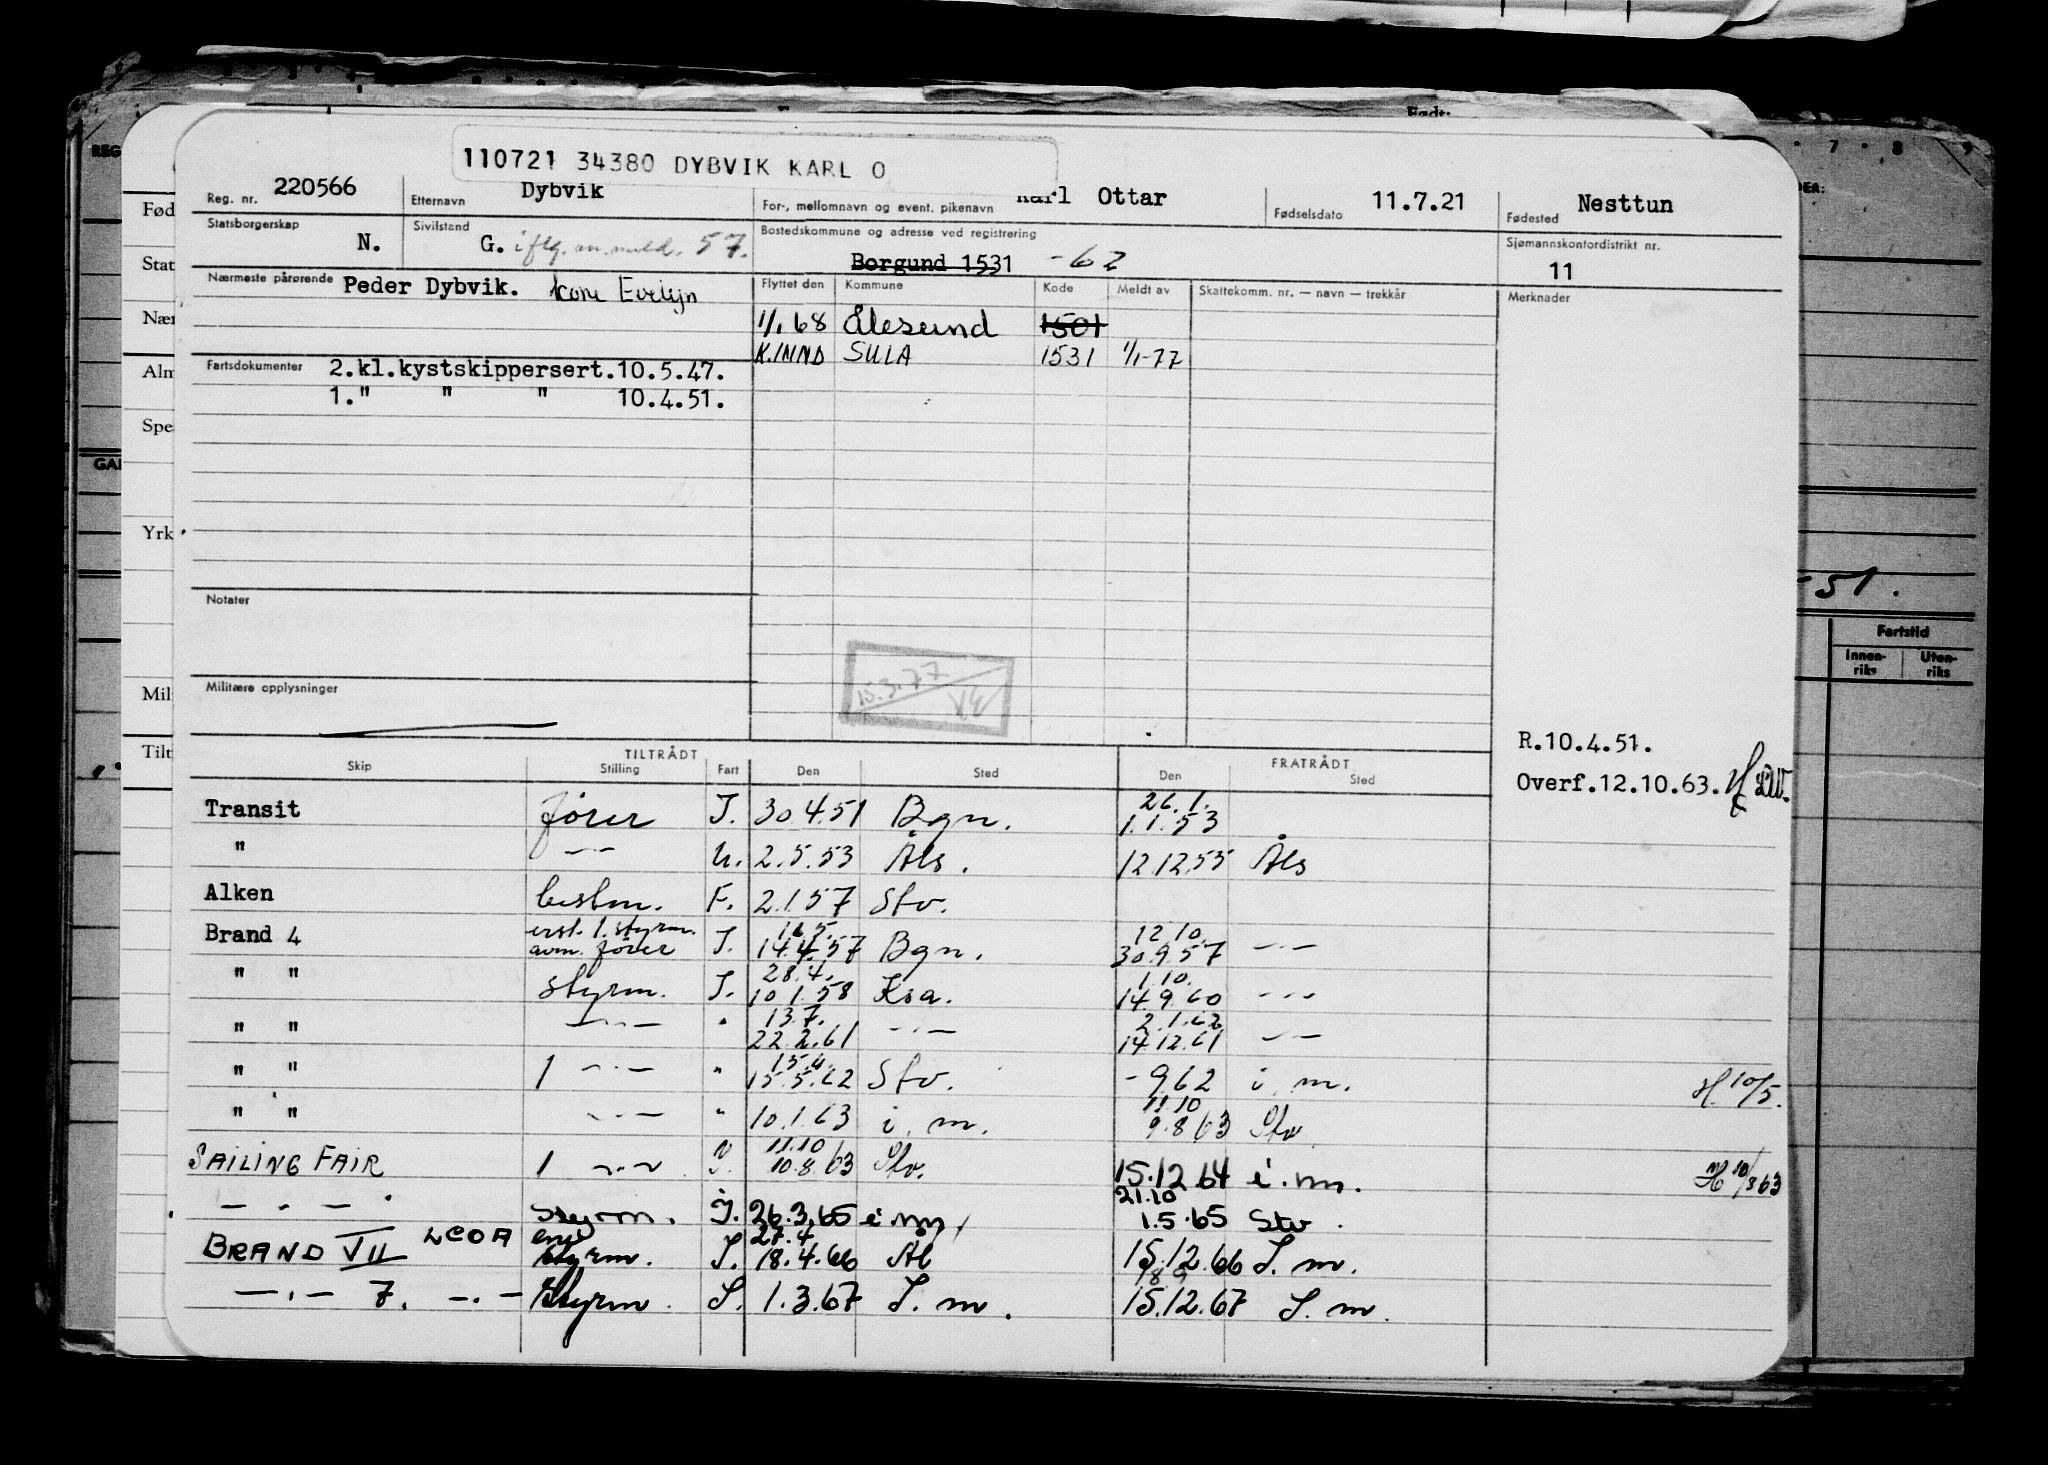 Født:
110721 34380 DYBVIK KARL O
Reg. nr. 220566 Etternavn Dybvik For-, mellomnavn og event. pikenavn Karl Ottar Fødselsdato 11.7.21 Fødested Nesttun
Statsborgerskap N. Sivilstand G. iflg. m. meld. 57. Bostedskommune og adresse ved registrering Borgund 1531 -62 Sjømannskontordistrikt nr. 11
Nærmeste pårørende Peder Dybvik. kone Evelyn Flyttet den Kommune Kode Meldt av Skattekomm. nr. — navn — trekkår Merknader
1/1 68 Ålesund 1501
K.INND SULA 1531 1/1-77
Fartsdokumenter 2.kl.kystskippersert.10.5.47.
1." " " 10.4.51.
Notater
15.3.77
Militære opplysninger
R.10.4.51.
Overf.12.10.63.
TILTRÅDT FRATRÅDT
Skip Stilling Fart Den Sted Den Sted
26.1.
Transit fører I. 30.4.51 Bgn. 1.1.53
" —"— U. 2.5.53 Åls. 12.12.53 Åls
Alken bestm. F. 2.1.57 Stv.
erst. 1. styrm. 16.5. 12.10.
Brand 4 avm. fører I. 14.4.57 Bgn. 30.9.57 —"—
28.4. 1.10.
" " styrm. I. 10.1.58 Ksa. 14.9.60 —"—
13.7. 2.1.62
" " —"— " 22.2.61 —"— 14.12.61 —"—
15.4.
" " 1 —"— " 15.5.62 Stv. -9.62 i. m. H. 10/5.
11.10
" " —"— " 10.1.63 i. m. 9.8.63 Stv
11.10
SAILING FAIR 1 —"— I. 10.8.63 Stv. 15.12.64 i. m. 10/8 63
21.10
— " — styrm. I. 26.3.65 i m. 1.5.65 Stv.
27.4
BRAND VII LCOA styrm. I. 18.4.66 Ål 15.12.66 I. m.
18.9
— " — 7. — " — Styrm. I. 1.3.67 I. m. 15.12.67 I. m.
REG
Fød
Stat
Nær
Alm
Spe
GAI
Yrk
Mil
Tilt
7 8 9
DER:
-51.
Fartstid
Innen-riks Uten-riks